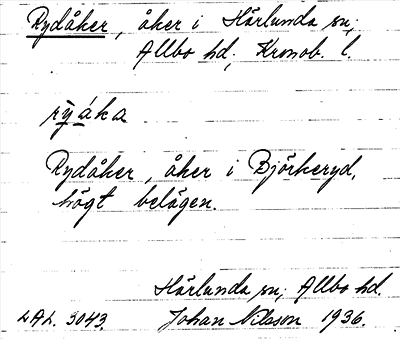 Rydåker, åker i Härlunda sn;
Allbo hd; Kronob. l.
rỳáka
Rydåker, åker i Björkeryd,
högt belägen.
Härlunda sn; Allbo hd.
LAL. 3043. Johan Nilsson 1936.